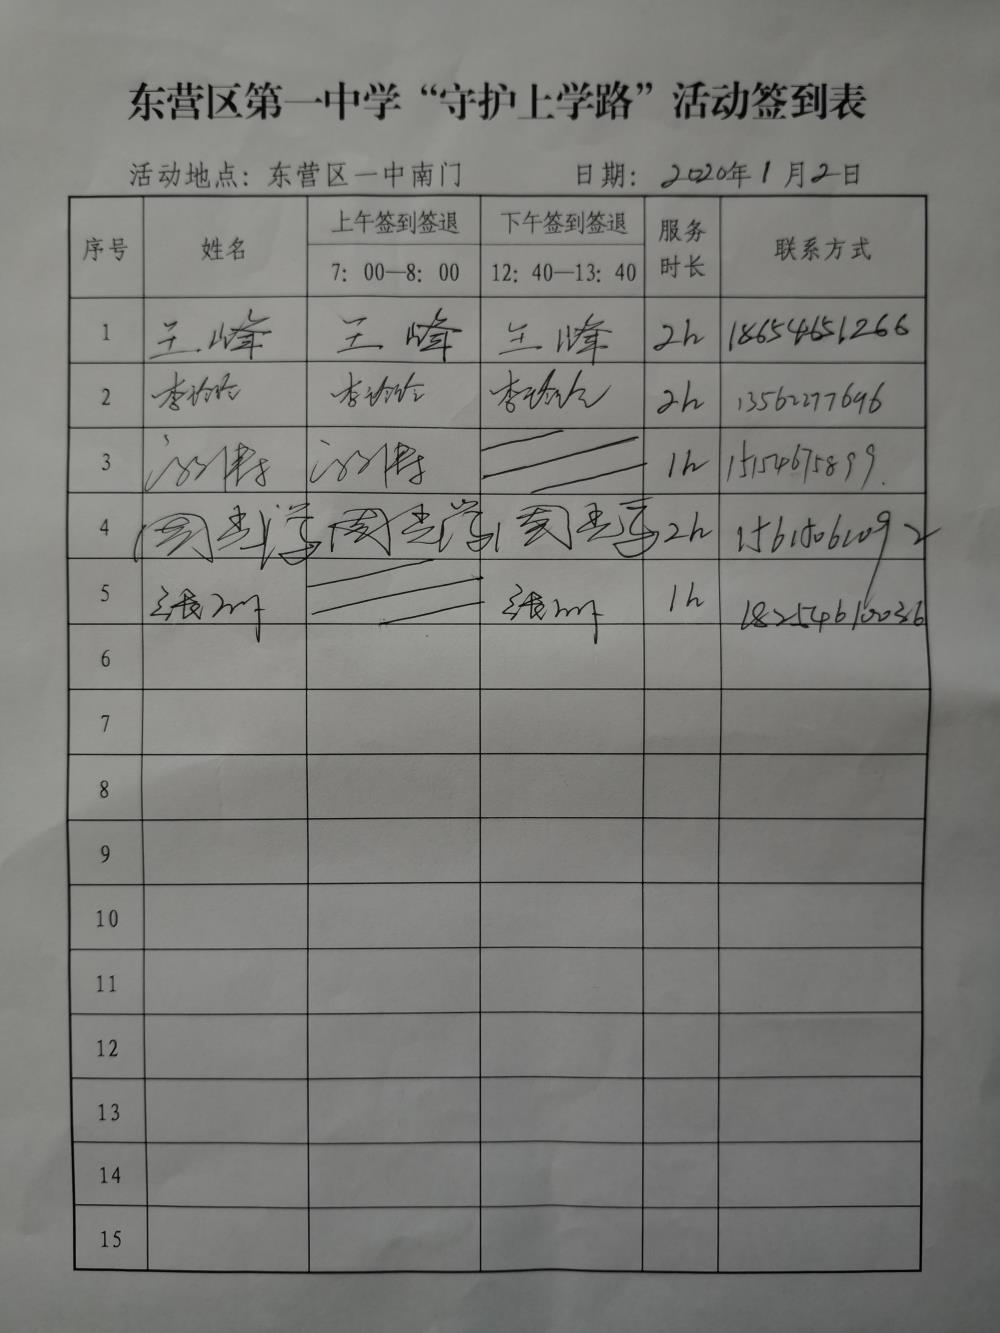 东营区第一中学“守护上学路”活动签到表
活动地点：东营区一中南门 日期：2020年1月2日
序号 姓名 上午签到签退 下午签到签退 服务时长 联系方式
7：00—8：00 12：40—13：40
1 王峰 王峰 王峰 2h 18654651266
2 李玲玲 李玲玲 李玲玲 2h 13562277696
3 1h 15154675899
4 2h 15615061092
5 1h 18254610036
6
7
8
9
10
11
12
13
14
15